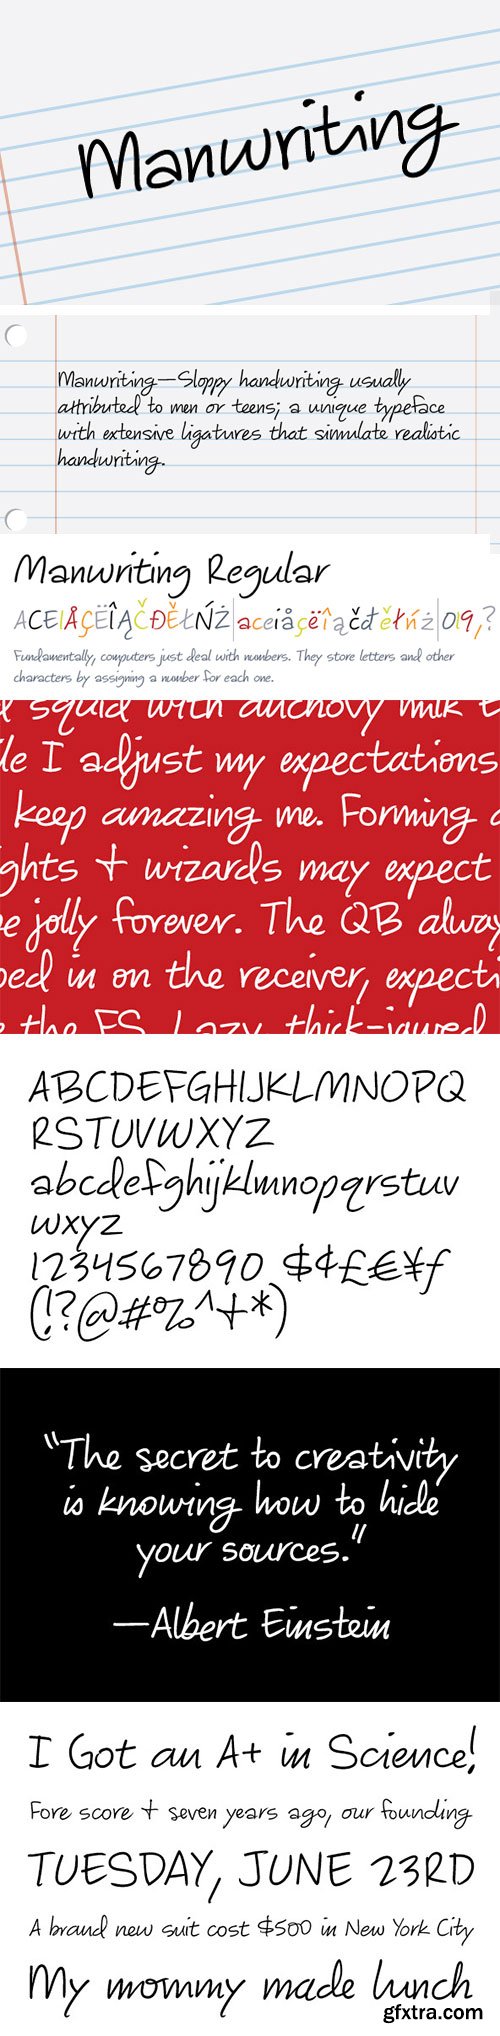 Manwriting
Manwriting—Sloppy handwriting usually
attributed to men or teens; a unique typeface
with extensive ligatures that simnulate realistic
handwriting.
Manwriting Regular
ACEIÅÇËÎĄČĐĚŁŃŻ aceiåçëîąčđěłńż 019,?
Fundamentally, computers just deal with numbers. They store letters and other
characters by assigning a number for each one.
squid with anchovy milk
I adjust my expectations
keep amazing me. Forming
ghts + wizards may expect
jolly forever. The QB alway
ped in on the receiver, expecti
the FS. Lazy, thick-jawed
ABCDEFGHIJKLMNOPQ
RSTUVWXYZ
abcdefghijklmnopqrstuv
wxyz
1234567890 $¢£€¥ƒ
(!?@#%^+*)
"The secret to creativity
is knowing how to hide
your sources."
—Albert Einstein
I Got an A+ in Science!
Fore score + seven years ago, our founding
TUESDAY, JUNE 23RD
A brand new suit cost $500 in New York City
My mommy made lunch
gfxtra.com